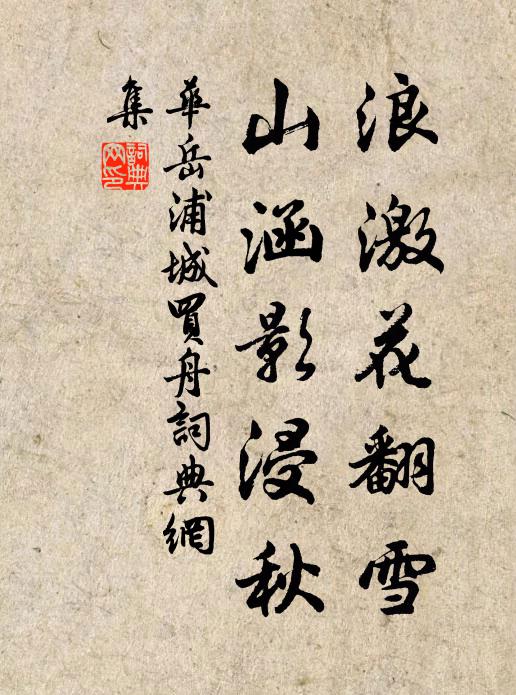 浪激花翻雪
山涵影浸秋
華岳浦城買舟詞典網
集
詞典
网印